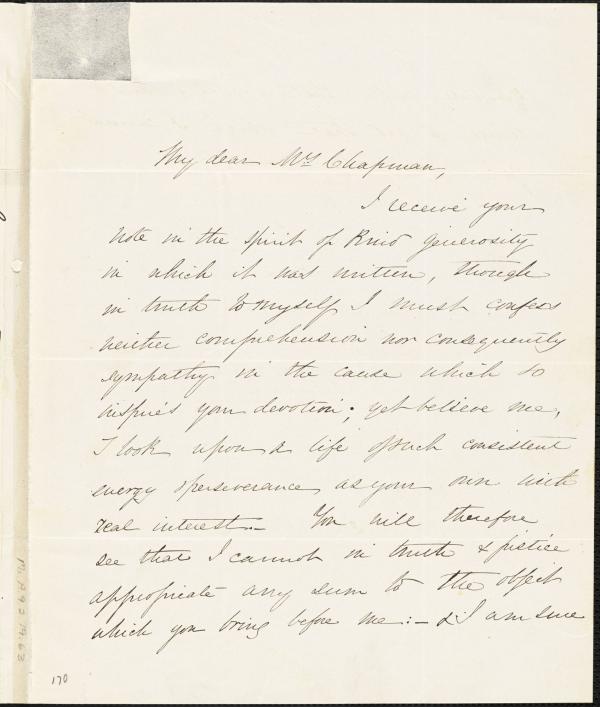 My dear Mrs Chapman,
I receive your
note in the spirit of kind generosity
in which it was written, though
in truth to myself I must confess
neither comprehension nor consequently
sympathy in the cause which so
inspires your devotion; yet believe me,
I look upon a life of such consistent
energy & perseverance as your own with
real interest.— You will therefore
see that I cannot in truth & justice
appropriate any sum to the object
which you bring before me:— & I am sure
170